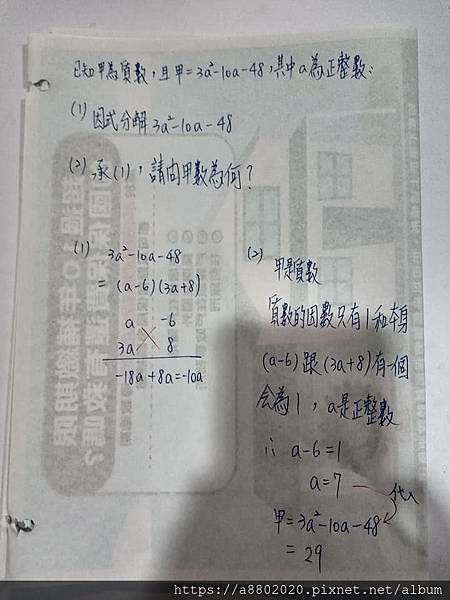 已知甲為質數,且甲=3a²-10a-48,其中a為正整數:
(1) 因式分解 3a²-10a-48
(2) 承(1),請問甲數為何?
(1)
3a²-10a-48
= (a-6)(3a+8)
a -6
3a 8
-18a+8a=-10a
(2)
甲是質數
質數的因數只有1和本身
(a-6)跟(3a+8)有一個
會為1,a是正整數
∴ a-6=1
a=7
代入
甲=3a²-10a-48
= 29
https://a8802020.pixnet.net/album